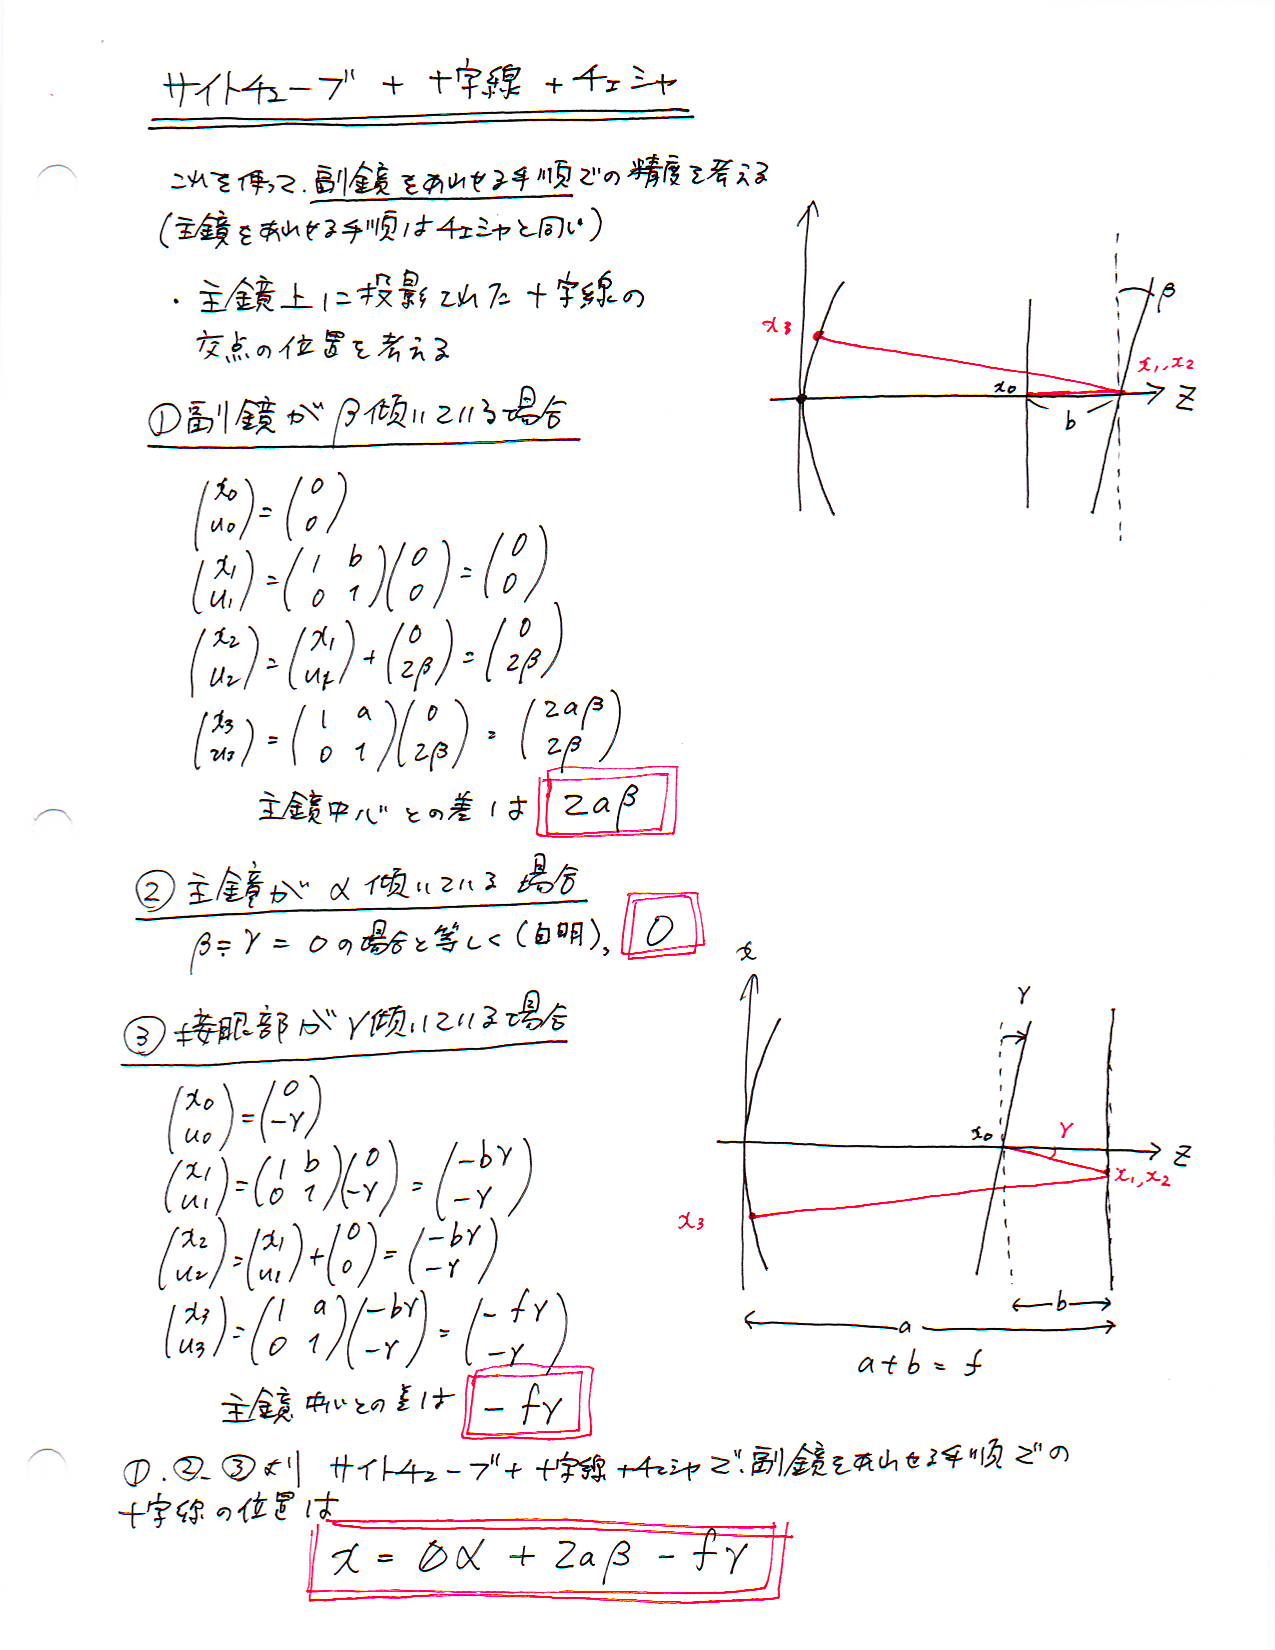 サイトチューブ + 十字線 + チェシャ
これを使って、副鏡をあわせる手順での精度を考える
(主鏡をあわせる手順はチェシャと同じ)
・主鏡上に投影された十字線の
交点の位置を考える
x3
β
x1, x2
x0
b
Z
①副鏡がβ傾いている場合
(x0 u0) = (0 0)
(x1 u1) = (1 b 0 1)(0 0) = (0 0)
(x2 u2) = (x1 u1) + (0 2β) = (0 2β)
(x3 u3) = (1 a 0 1)(0 2β) = (2aβ 2β)
主鏡中心との差は 2aβ
②主鏡がα傾いている場合
β=γ=0の場合と等しく(自明)、0
③接眼部がγ傾いている場合
(x0 u0) = (0 -γ)
(x1 u1) = (1 b 0 1)(0 -γ) = (-bγ -γ)
(x2 u2) = (x1 u1) + (0 0) = (-bγ -γ)
(x3 u3) = (1 a 0 1)(-bγ -γ) = (-fγ -γ)
主鏡中心との差は -fγ
x
γ
x0
γ
Z
x1, x2
x3
b
a
a+b=f
①、②、③より サイトチューブ+十字線+チェシャで、副鏡をあわせる手順での
十字線の位置は
x = 0α + 2aβ - fγ